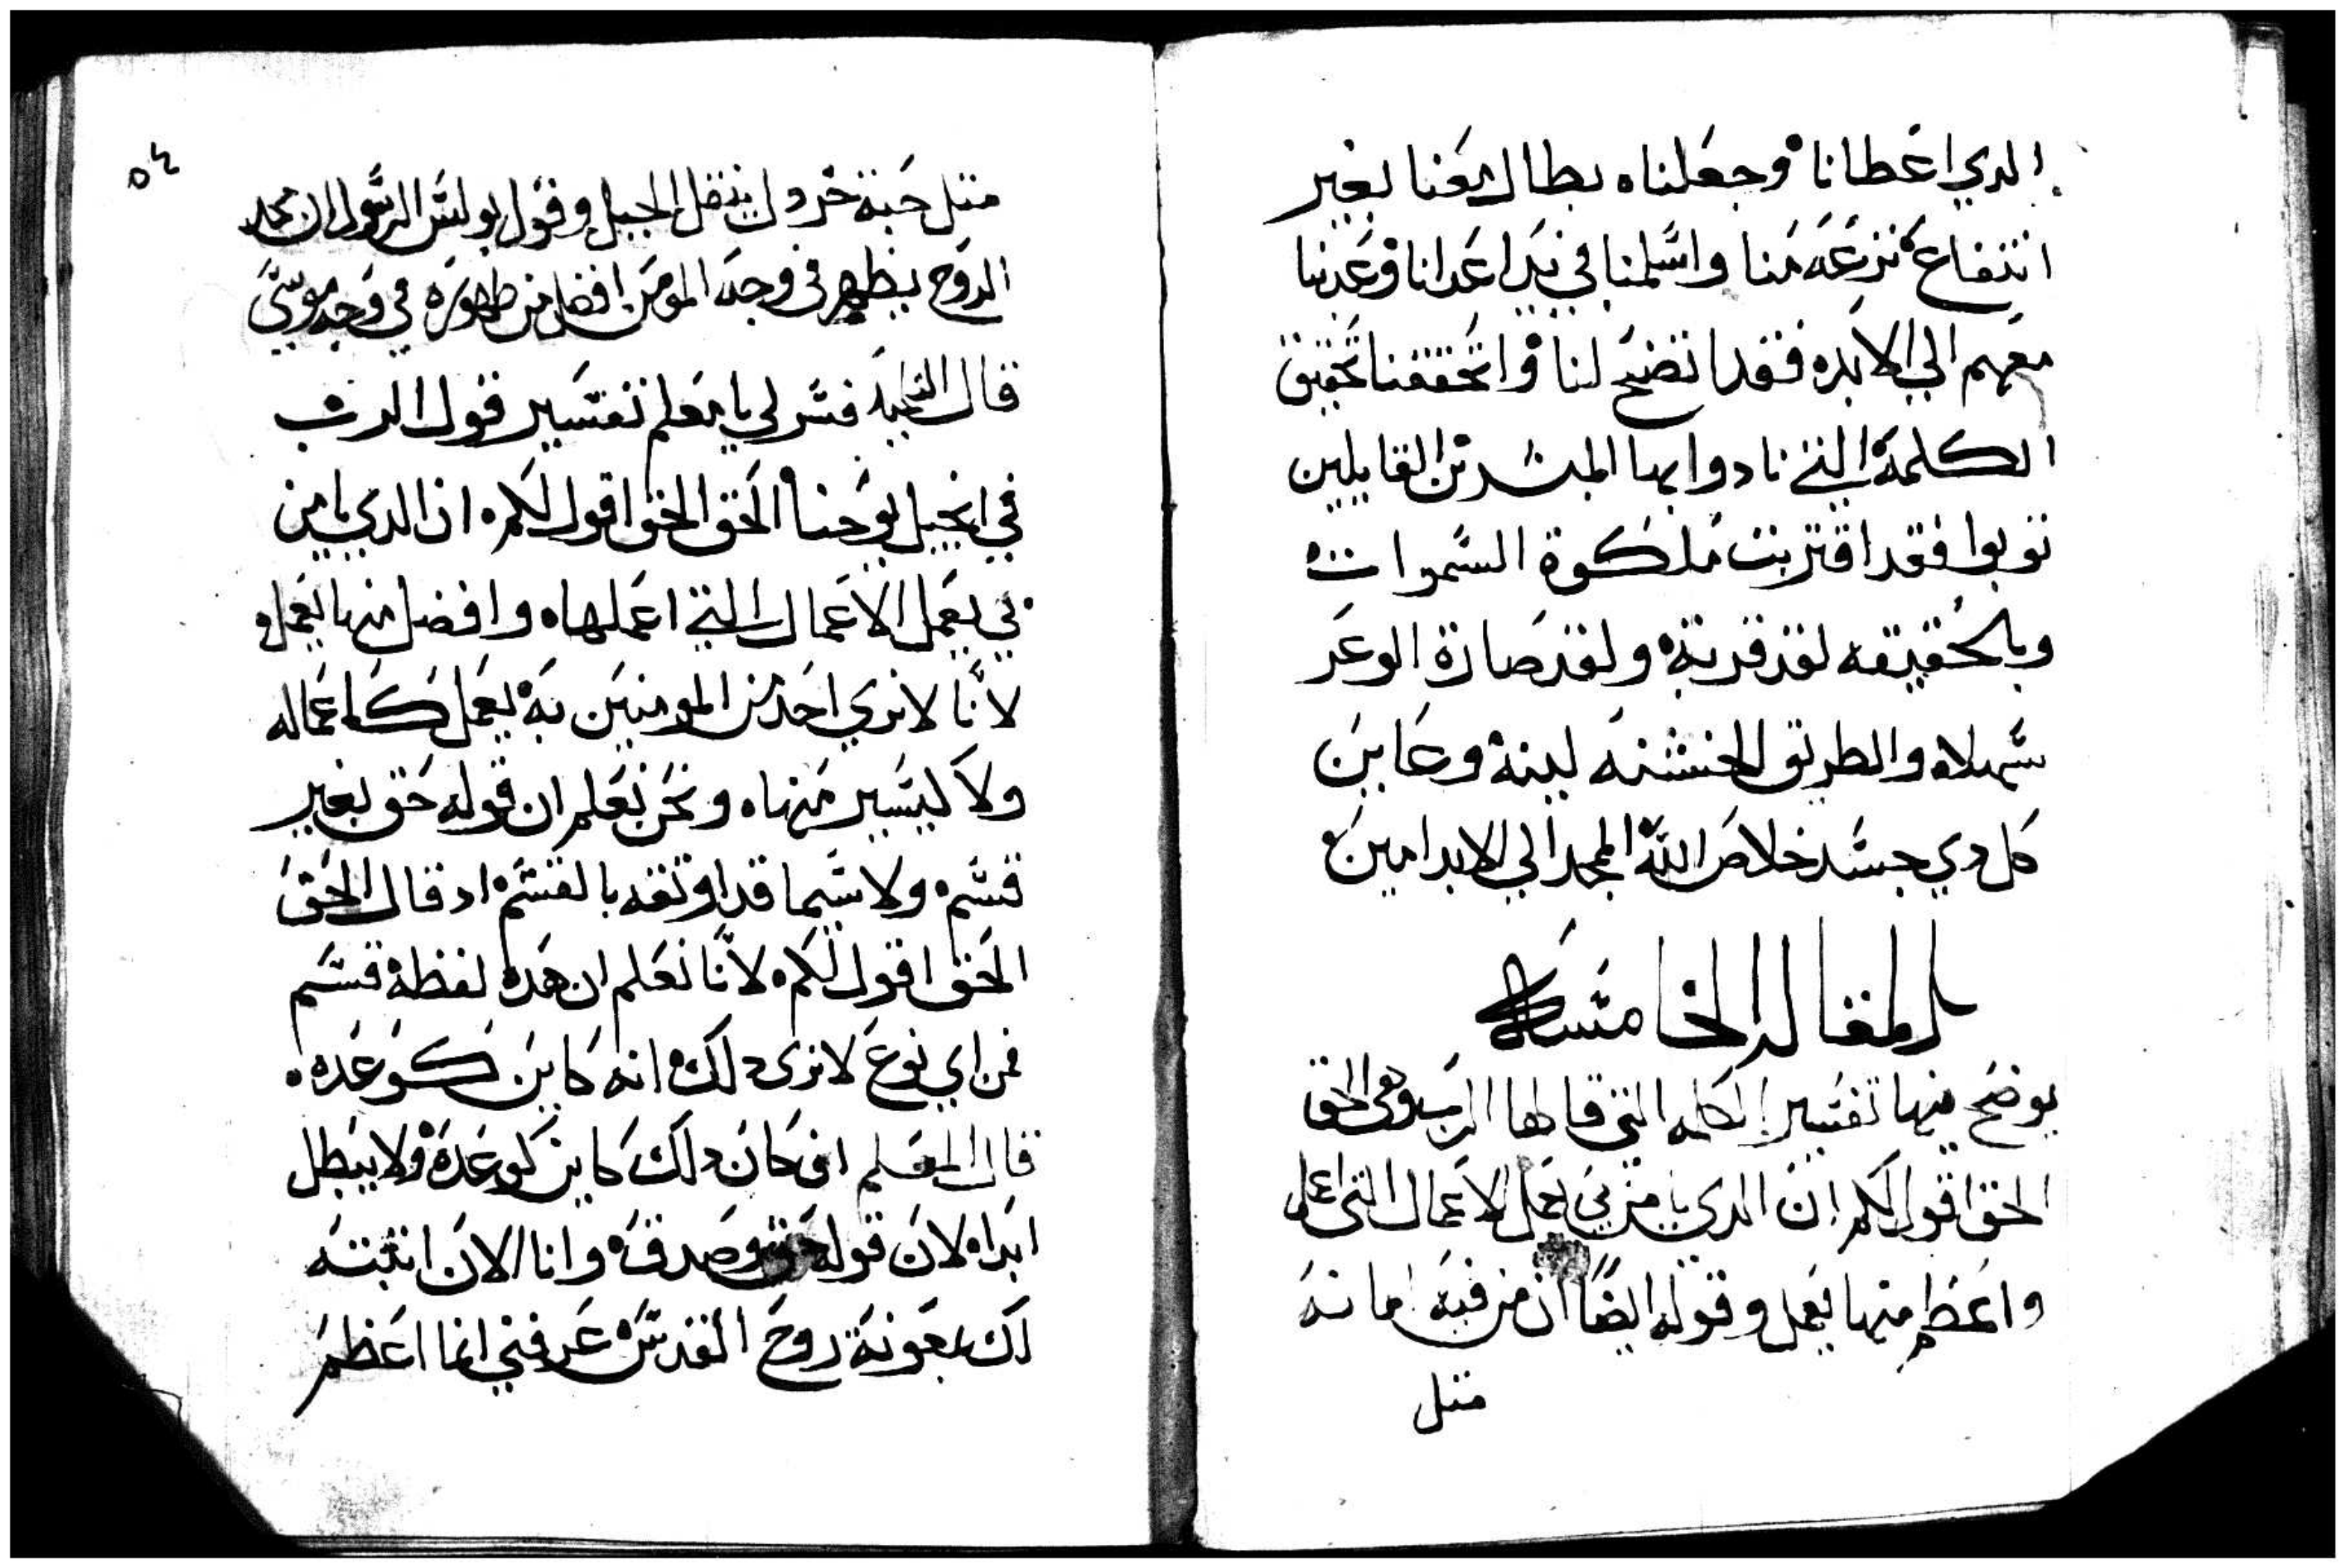 الدي اعطانا وجعلناه بطال معنا بغير
انتفاع نزعه منا واسلمنا في يد اعدانا وعدبنا
معهم الي الابده فقد اتضح لنا واتحققنا تحقيق
الكلمة التي نادوا بها المبشرين القايلين
توبوا فقد اقتربت ملكوة السموات
وبالحقيقه لقد قربة ولقد صارة الوعر
سهلاه والطريق الخشنه لينة وعاين
كل دي جسد خلاص الله المجد الي الابد امين
المقاله الخامسه
يوضح فيها تفسير الكلمه التي قالها الرب وهي الحق
الحق اقول لكم ان الدي يامن بي يعمل الاعمال التي اعمل
واعظم منها يعمل وقوله ايضا ان من فيه امانه
متل
٥٤
متل حبة خردل ينتقل الجبل وقول بولس الرسول ان مجد
الروح يظهر في وجه المومن افضل من ظهوره في وجه موسى
قال التلميد فسر لي يا معلم تفسير قول الرب
في انجيل يوحنا الحق الحق اقول لكم ان الدي يامن
بي يعمل الاعمال التي اعملهاه وافضل منها يعمل
لانا لا نري احد من المومنين به يعمل كاعماله
ولا ليسير منهاه ونحن نعلم ان قوله حق بغير
قسم ولا سيما قد اوتقه بالقسم اد قال الحق
الحق اقول لكم لانا نعلم ان هده لفظة قسم
فمن اي نوع لا نرى دلك انه كاين كوعده
قال المعلم ان كان دلك كاين كوعده ولا يبطل
ابداه لان قوله حق وصدق وانا الان اتبته
لك بمعونة روح القدس عرفني انما اعظم